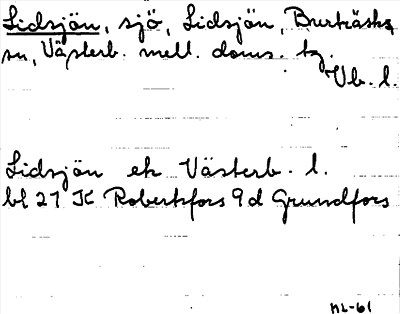 Lidsjön, sjö, Lidsjön, Burträsks
sn, Västerb. mell. doms. bg.
Vb. l.
Lidsjön ek Västerb. l.
bl 21 K Robertsfors 9d Grundfors
NL-61